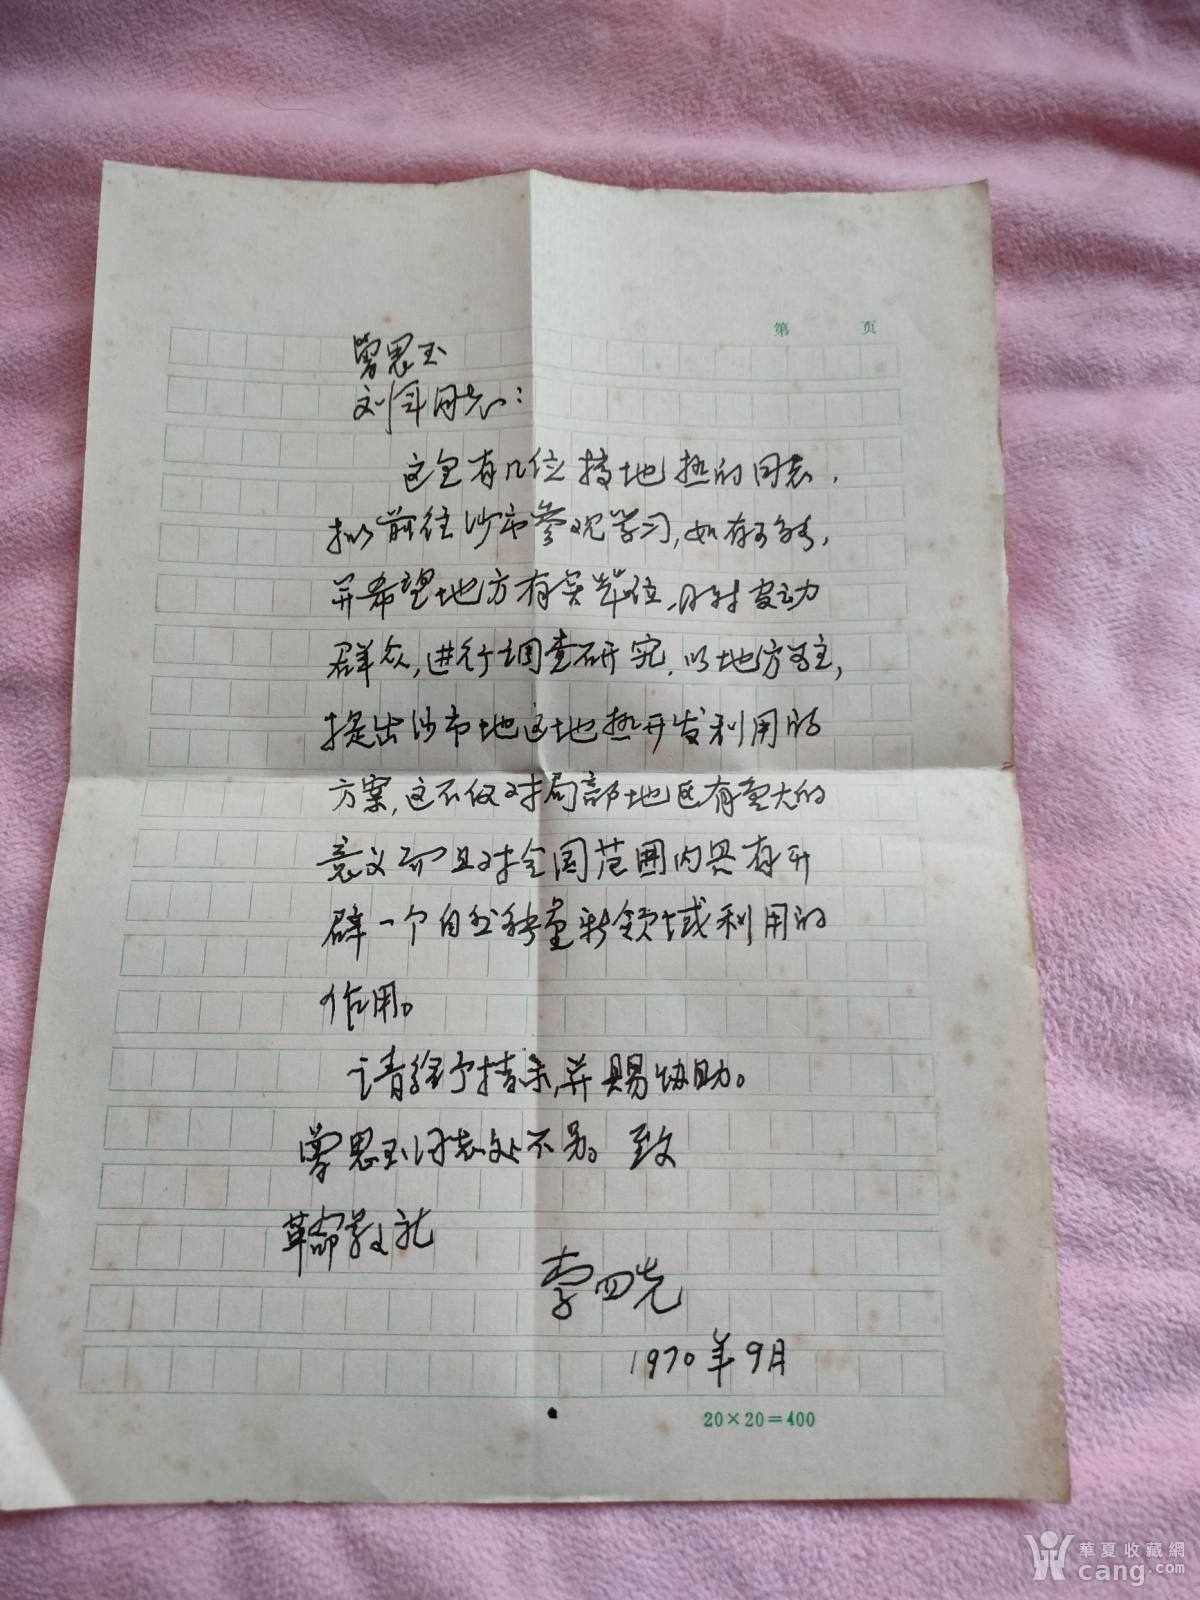 第 页
曾思玉
刘丰同志:
这里有几位搞地热的同志,
拟前往沙市参观学习,如有可能,
并希望地方有关单位,同时发动
群众,进行调查研究,以地方为主,
提出沙市地区地热开发利用的
方案,这不仅对局部地区有重大的
意义而且对全国范围内具有开
辟一个自然能量新领域利用的
作用。
请给予指示,并赐协助。
曾思玉同志处不另。致
革命敬礼
李四光
1970年9月
20×20=400
華夏收藏網
cang.com